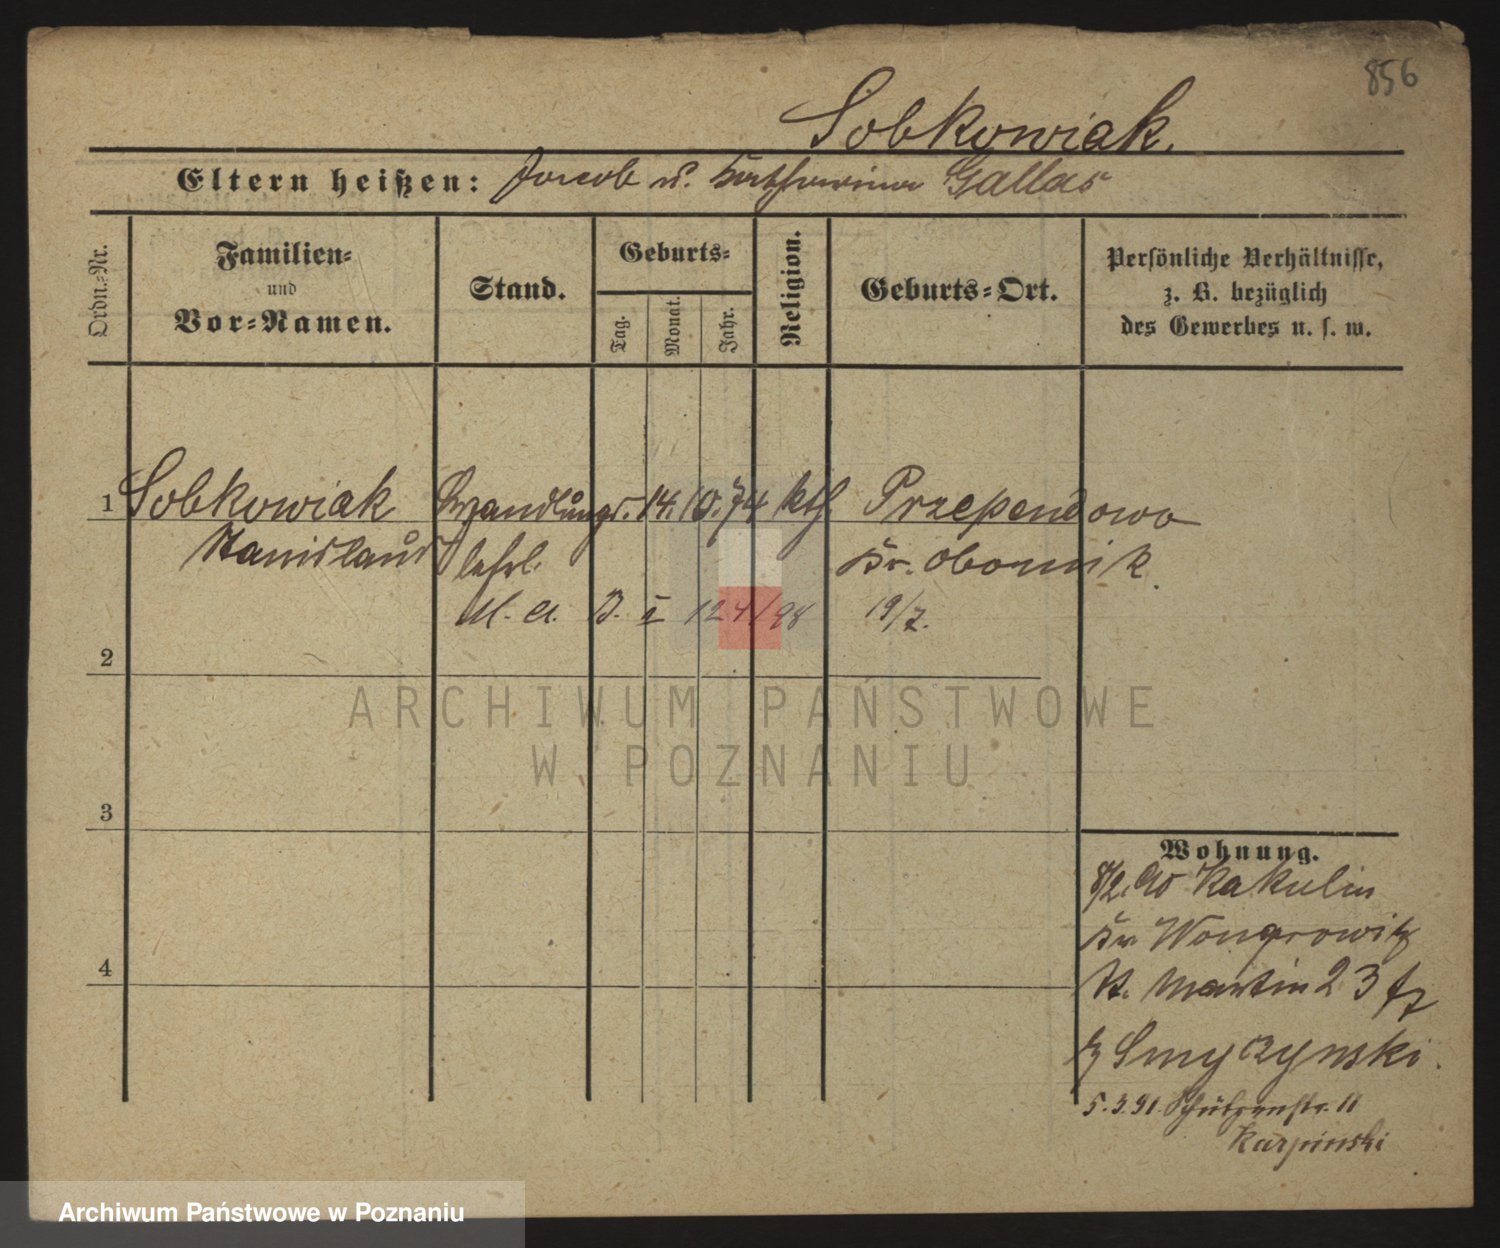 856
Sobkowiak.
Eltern heißen: Jacob u. Katharina Gallas
Ordn.-Nr.
Familien-
und
Vor-Namen.
Stand.
Geburts-
Tag.
Monat.
Jahr.
Religion.
Geburts-Ort.
Persönliche Verhältnisse,
z. B. bezüglich
des Gewerbes u. s. w.
1 Sobkowiak Handlungs. 14. 10. 74 kth. Przependowo
Stanislaus lehrl. Kr. Obornik
M. A. B. I 124/98 19/7.
2
3
4
ARCHIWUM PAŃSTWOWE
W POZNANIU
Wohnung.
8/2. 90 Kakulin
Kr Wongrowitz
St. Martin 23
Smyczynski.
5.3.91. Schützenstr. 11
Karpinski
Archiwum Państwowe w Poznaniu